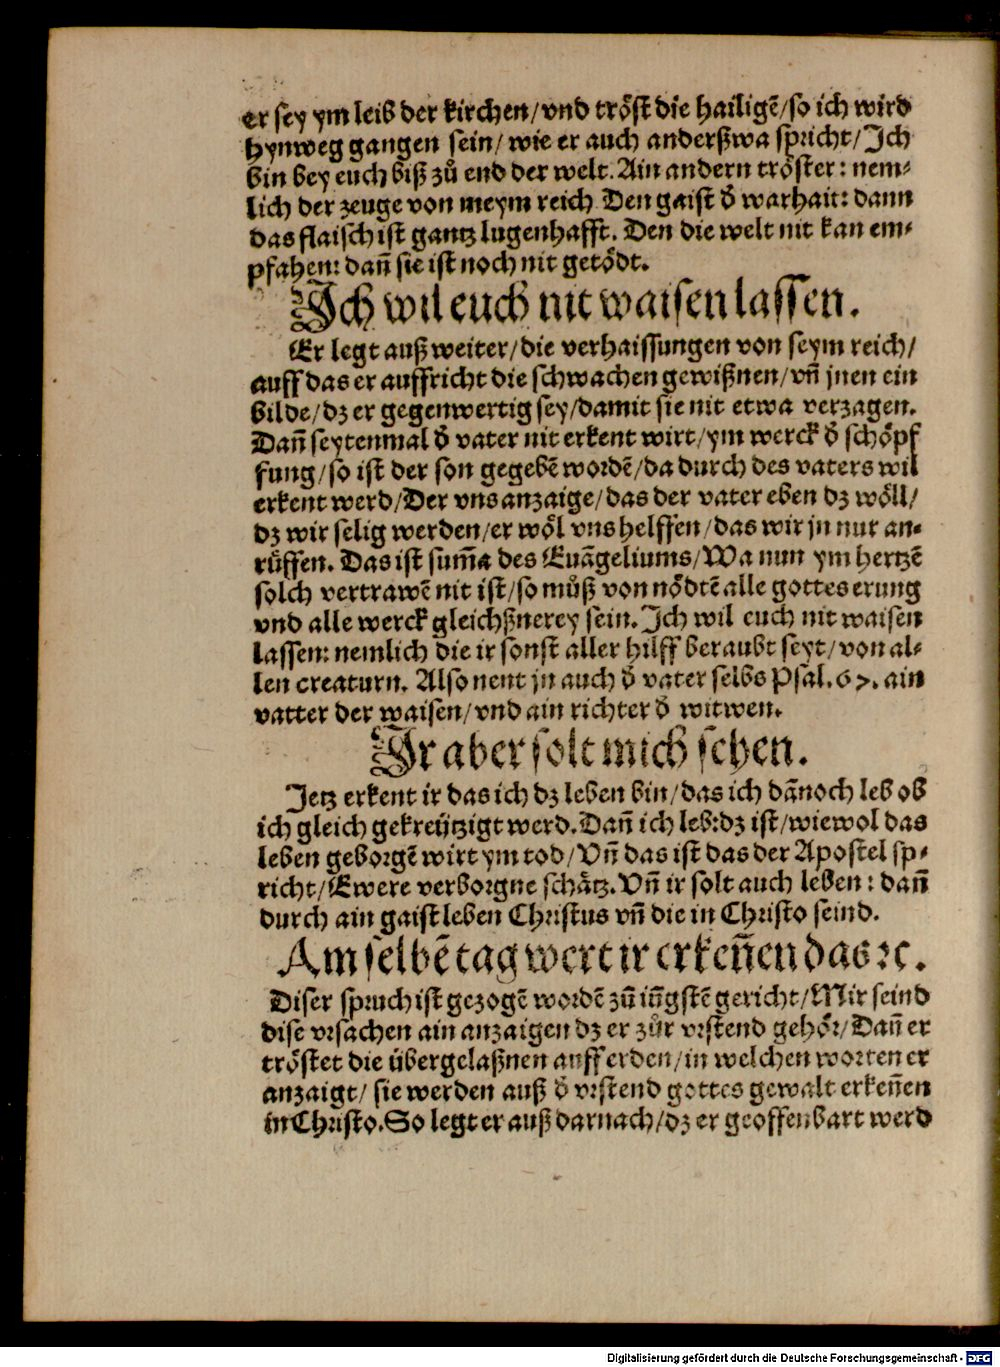 er sey ym leib der kirchen/vnd tröst die hailigē/so ich wird
hynweg gangen sein/ wie er auch anderßwa spricht/ Ich
bin bey euch biß zů end der welt. Ain andern tröster: nem⸗
lich der zeuge von meym reich. Den gaist d̕ warhait: dann
das flaisch ist gantz lugenhafft. Den die welt nit kan em⸗
pfahen: dañ sie ist noch nit getödt.
Ich wil euch nit waisen lassen.
Er legt auß weiter/die verhaissungen von seym reich/
auff das er auffricht die schwachen gewißnen/vñ jnen ein
bilde/dz er gegenwertig sey/damit sie nit etwa verzagen.
Dañ seytenmal d̕ vater nit erkent wirt/ym werck d̕ schöpf
fung/so ist der son gegebē wordē/da durch des vaters wil
erkent werd/Der vns anzaige/das der vater eben dz wöll/
dz wir selig werden/er wöl vns helffen/das wir jn nur an⸗
rüffen. Das ist sum̄a des Euāgeliums/Wa nun ym hertzē
solch vertrawē nit ist/so můß von nödtē alle gottes erung
vnd alle werck gleichßnerey sein. Ich wil euch nit waisen
lassen: nemlich die ir sonst aller hilff beraubt seyt/von al⸗
len creaturn. Also nent jn auch d̕ vater selbs Psal. 67. ain
vatter der waisen/vnd ain richter d̕ witwen.
Ir aber solt mich sehen.
Jetz erkent ir das ich dz leben bin/das ich dān̄och leb ob
ich gleich gekreützigt werd. Dañ ich leb:dz ist/wiewol das
leben geborgē wirt ym tod/Vñ das ist das der Apostel sp⸗
richt/Ewere verborgne schätz. Vñ ir solt auch leben: dañ
durch ain gaist leben Christus vñ die in Christo seind.
Am selbē tag wert ir erkeñen das ꝛc.
Diser spruch ist gezogē wordē zů iüngstē gericht/Mir seind
dise vrsachen ain anzaigen dz er zůr vrstend gehör/Dañ er
tröstet die übergelaßnen auff erden/in welchen worten er
anzaigt/ sie werden auß d̕ vrstend gottes gewalt erkeñen
in Christo. So legt er auß darnach/dz er geoffenbart werd
Digitalisierung gefördert durch die Deutsche Forschungsgemeinschaft - DFG